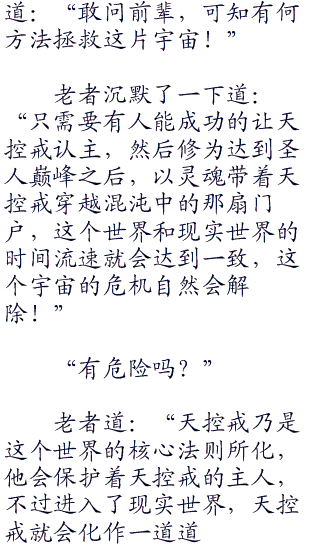 道：“敢问前辈，可知有何
方法拯救这片宇宙！”
老者沉默了一下道：
“只需要有人能成功的让天
控戒认主，然后修为达到圣
人巅峰之后，以灵魂带着天
控戒穿越混沌中的那扇门
户，这个世界和现实世界的
时间流速就会达到一致，这
个宇宙的危机自然会解
除！”
“有危险吗？”
老者道：“天控戒乃是
这个世界的核心法则所化，
他会保护着天控戒的主人，
不过进入了现实世界，天控
戒就会化作一道道